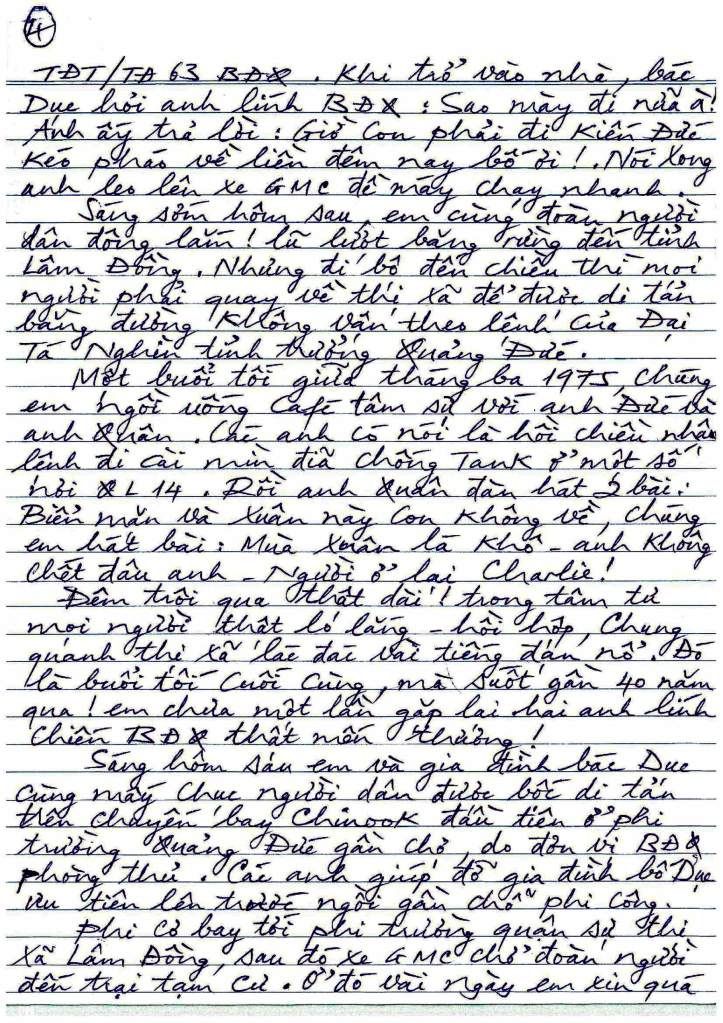 4
TĐT/TĐ 63 BĐQ. Khi trở vào nhà, bác
Dục hỏi anh lính BĐQ : Sao mày đi nữa à!
Anh ấy trả lời : Giờ con phải đi Kiến Đức
kéo pháo về liền đêm nay bố ơi!. Nói xong
anh leo lên xe GMC đề máy chạy nhanh.
Sáng sớm hôm sau, em cùng đoàn người
dân đông lắm! lũ lượt băng rừng đến tỉnh
Lâm Đồng. Nhưng đi bộ đến chiều thì mọi
người phải quay về thị xã để được di tản
bằng đường không vận theo lệnh của Đại
Tá Nghìn tỉnh trưởng Quảng Đức.
Một buổi tối giữa tháng ba 1975, chúng
em ngồi uống Café tâm sự với anh Đức và
anh Quân. Các anh có nói là hồi chiều nhận
lệnh đi cài mìn đĩa chống Tank ở một số
nơi QL14. Rồi anh Quân đàn hát 2 bài:
Biển mặn và Xuân này con không về, chúng
em hát bài : Mùa Xuân lá khô - anh không
chết đâu anh - Người ở lại Charlie!
Đêm trôi qua thật dài! trong tâm tư
mọi người thật lo lắng - hồi hộp, chung
quanh thị xã lác đác vài tiếng đạn nổ. Đó
là buổi tối cuối cùng, mà suốt gần 40 năm
qua! em chưa một lần gặp lại hai anh lính
chiến BĐQ thật mến thương!
Sáng hôm sau em và gia đình bác Dục
cùng mấy chục người dân được bốc di tản
trên chuyến bay Chinook đầu tiên ở phi
trường Quảng Đức gần chợ, do đơn vị BĐQ
phòng thủ. Các anh giúp đỡ gia đình bố Dục
ưu tiên lên trước ngồi gần chỗ phi công.
Phi cơ bay tới phi trường quân sự thị
xã Lâm Đồng, sau đó xe GMC chở đoàn người
đến trại tạm cư. Ở đó vài ngày em xin quá